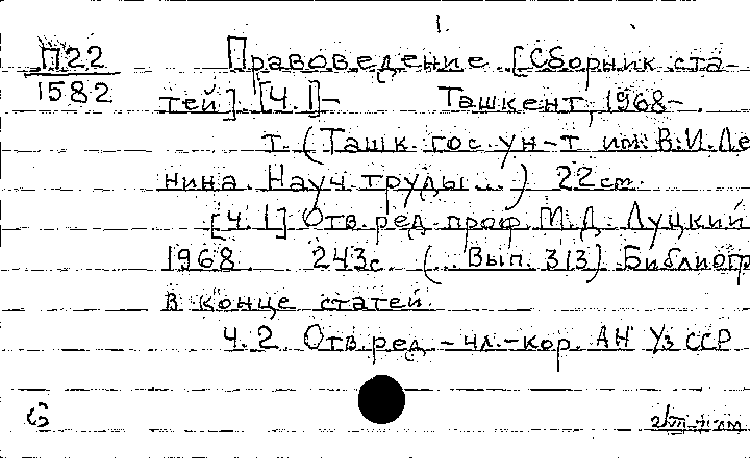 1.
П22 Правоведение. [Сборник ста-
1582 тей]. [Ч. 1]- Ташкент, 1968-.
т. (Ташк. гос. ун-т им. В.И.Ле
нина. Науч. труды...) 22 см.
[Ч. 1] Отв. ред. проф. М.Д. Луцкий
1968. 243 с. (...Вып. 313) Библиогр
в конце статей.
Ч. 2. Отв. ред. -чл.-кор. АН УзССР